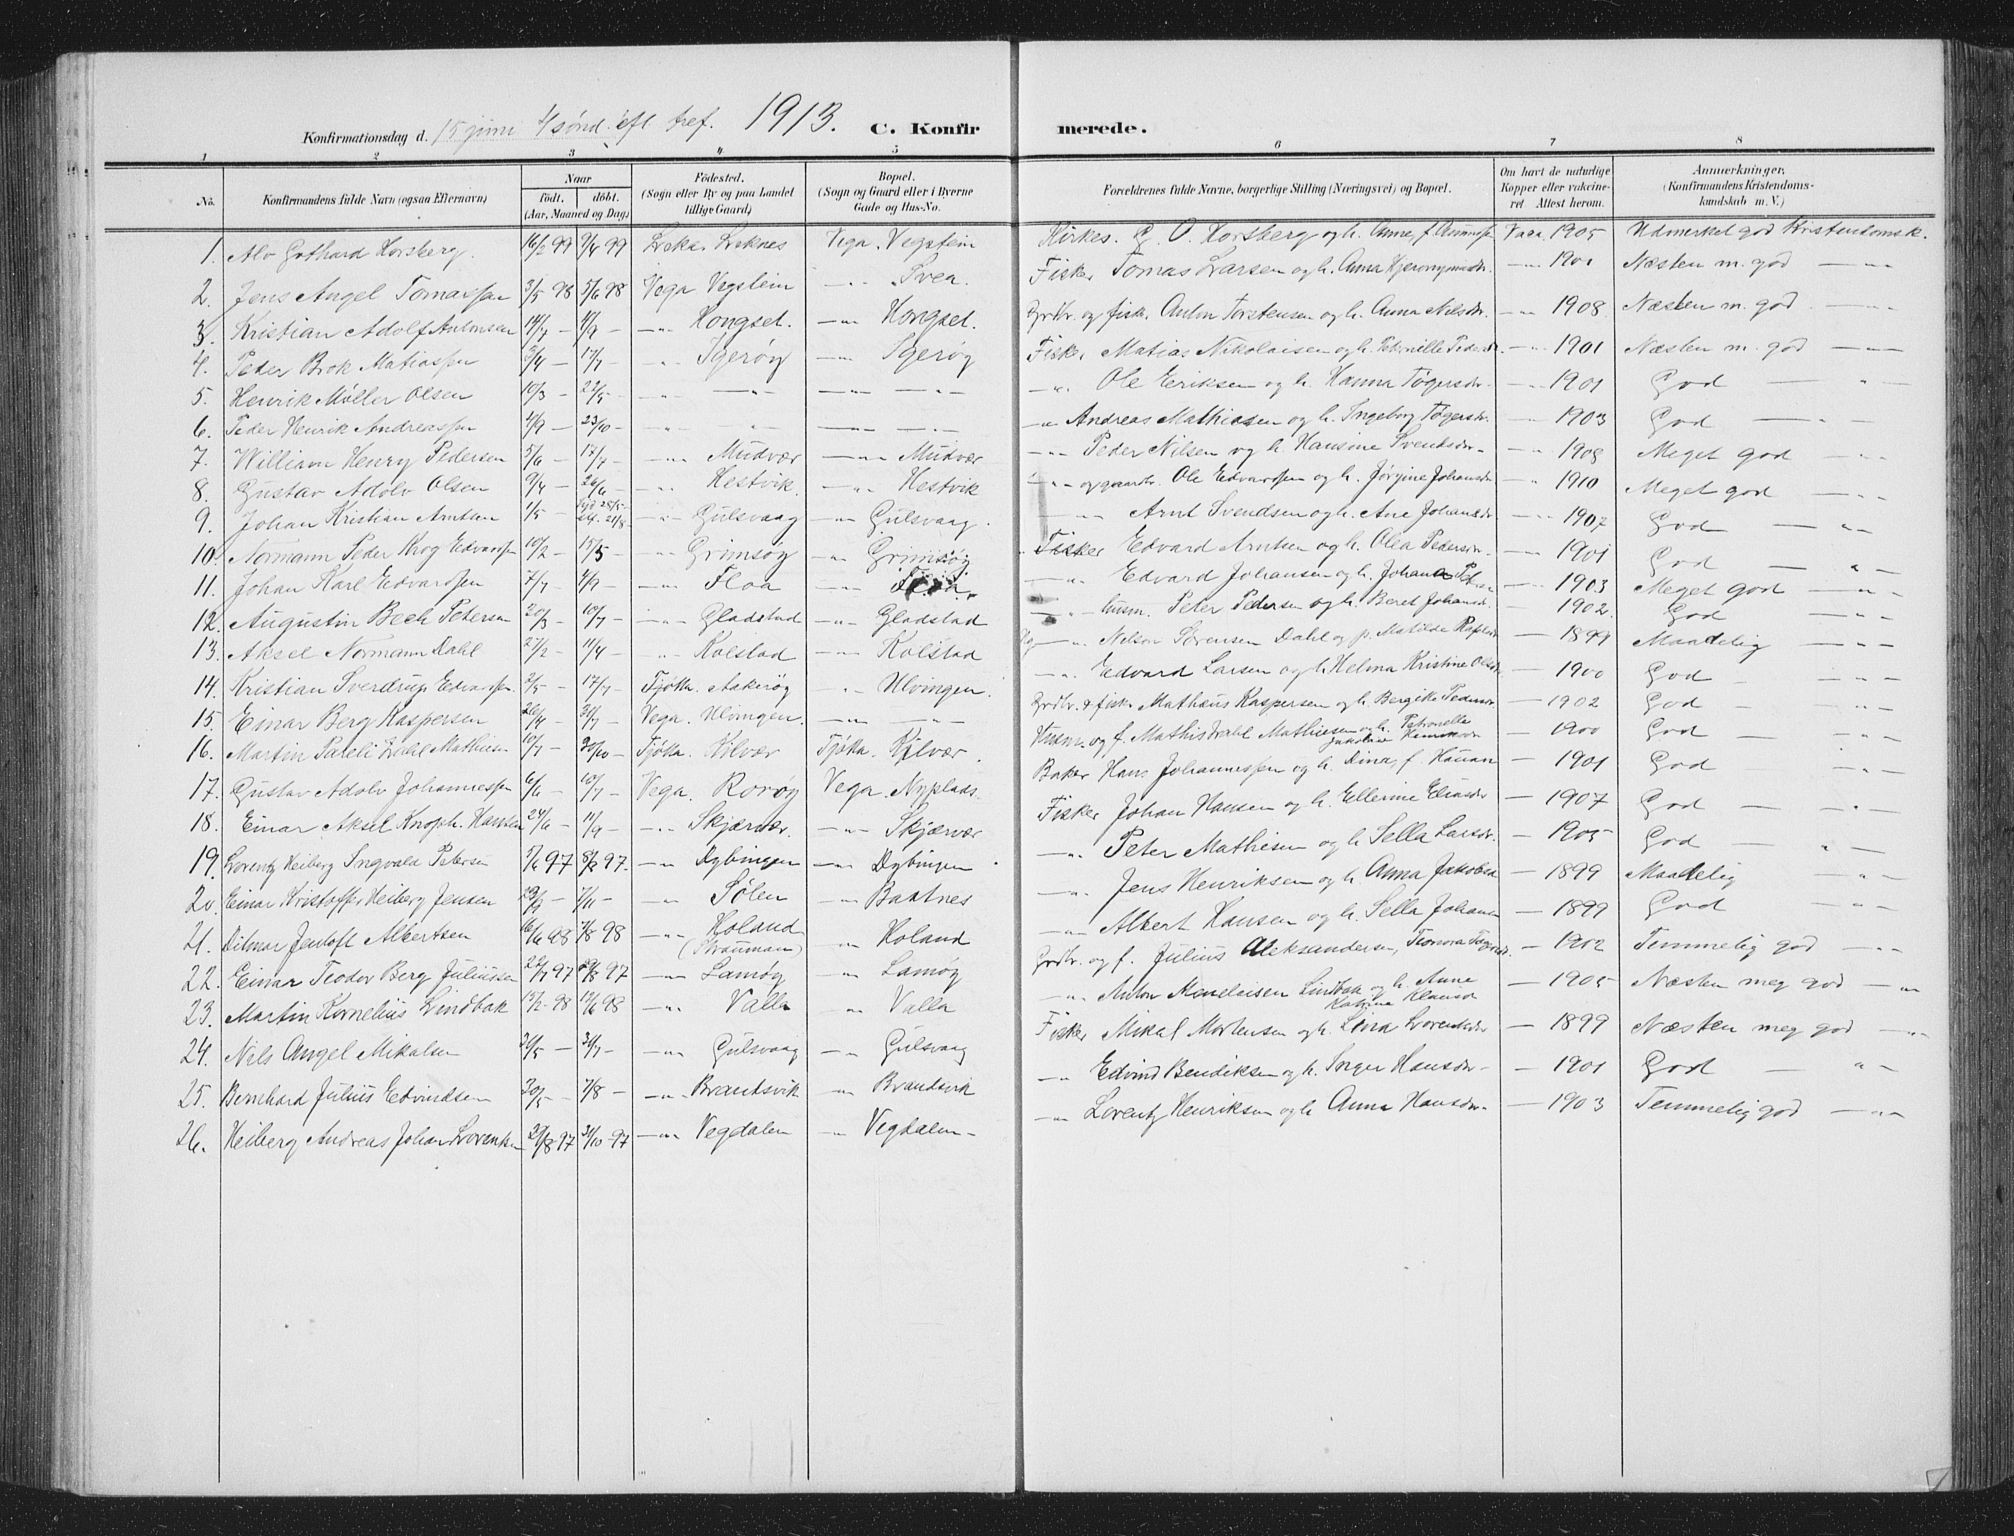 Konfirmationsdag d. 15 juni 4 sønd. eft tref. 1913. C. Konfirmerede.
1 2 3 4 5 6 7 8
No. Konfirmandens fulde Navn (ogsaa Efternavn) Naar født. døbt. (Aar, Maaned og Dag) Fødested. (Sogn eller By og paa Landet tillige Gaard) Bopæl. (Sogn og Gaard eller i Byerne Gade og Hus-No. Forældrenes fulde Navne, borgerlige Stilling (Næringsvei) og Bopæl. Om havt de naturlige Kopper eller vakcineret Attest herom. Anmerkninger. (Konfirmandens Kristendomskundskab m. V.)
1. Alv Gothard Horsberg 16/2 99 2/4 99 Leka Leknes Vega. Vegstein Kirkes. G. O. Horsberg og h. Anne, f. Vaca. 1905 Udmerket god Kristendomsk.
2. Jens Angel Tomassen 3/5 98 5/6 98 Vega Vegstein -"- Svea. Fisker Tomas Larsen og h. Anna Hjeronymusdr. -"- 1901 Næsten m. god -"-
3. Kristian Adolf Antonsen 14/7 - 4/9 - -"- Hongset. -"- Hongset. Grdbr. og fisk. Anton Torstensen og h. Anna Nilsdr. -"- 1908 Næsten m. god -"-
4. Peder Brok Matiassen 3/4 - 17/7 " Igerøy -"- Igerøy Fisker Matias Nikolaisen og h. Petronille Pedersdr. -"- 1901 Næsten m. god -"-
5. Henrik Møller Olsen 10/3 - 22/5 - " -"- -"- -"- -"- Ole Eriksen og h. Hanna Tøgersdr. -"- 1901 God - "
6. Peder Henrik Andreassen 4/9 - 23/10 - " " -"- -"- -"- Andreas Mathiasen og h. Ingeborg Tøgersdr. -"- 1903 God -"-
7. William Henry Pedersen 5/6 - 17/7 - -"- Mudvær -"- Mudvær -"- Peder Nilsen og h. Hansine Svendsdr. -"- 1908 Meget god -"-
8. Gustav Adolv Olsen 9/4 - 26/6 - -"- Hestvik. -"- Hestvik -"- og gaardbr. Ole Edvardsen og h. Jørgine Johansdr. -"- 1910 Meget god -"-
9. Johan Kristian Arntsen 1/5 - Hjd 25/5 - stf. 21/8 -"- Gulsvaag -"- Gulsvaag. -"- Arnt Svendsen og h. Ane Johansdr. -"- 1907 God - "
10. Normann Peder Krog Edvardsen 10/2 - 15/5 -"- Grimsøy -"- Grimsøy Fisker Edvard Arntsen og h. Olea Pedersdr. -"- 1901 God - "
11. Johan Karl Edvardsen 7/7 - 4/9 - -"- Floa -"- Floa. -"- Edvard Johansen og h. Johana -"- 1903 Meget god -"-
12. Augustin Bech Petersen 20/3 - 10/7 - -"- Gladstad -"- Gladstad -"- husm. Peter Pedersen og h. Beret Johansdr. -"- 1902 God -"-
13. Aksel Normann Dahl 27/2 - 11/4 - " Kolstad -"- Kolstad -"- Nelson Sørensen Dahl og p. Matilde - 1899 Maadelig -"-
14. Kristian Sverdrup Edvardsen 2/5 - 17/7 - Tjøtta. Aakerøy -"- Ulvingen. -"- Edvard Larsen og h. Helma Kristine - 1900 God -"-
15. Einar Berg Kaspersen 26/4 - 31/7 - Vega. Ulvingen. -"- -"- Grdbr. & fisk. Mathæus Kaspersen og h. Bergitte Pedersdr - 1902 God -"-
16. Martin Pareli Mathisen 10/7 - 30/10 - Tjøtta. Kilvær Tjøtta. Kilvær. Husm. og f. Mathis Mathiesen og h. Petronelle Jakobine - 1900 God -"-
17. Gustav Adolv Johannessen 6/6 - 10/7 - Vega. Rorøy Vega. Nyplads. Baker Hans Johannessen og h. Dina, f. Hauan - 1901 God "
18. Einar Aksel Knoph. Hansen 24/6 - 11/9 - -"- Skjærvær. -"- Skjærvær Fisker Johan Hansen og h. Ellerine Eliasdr - 1907 God - "
19. Lorentz Heiberg Ingvald Petersen 97 97. -"- Dybingen -"- Dybingen -"- Peter Mathisen og h. Sella Larsdr. - 1905 God - "
20. Einar Kristoffer Heiberg Jensen 29/9 - 7/11 - -"- Sølen -"- Baatnes -"- Jens Henriksen og h. Anna - 1899 Maadelig "
21. Ditmar Jentoft Albertsen 16/6 98 7/8 98 -"- Holand -"- Holand -"- Albert Hansen og h. Sella - 1899 God -"-
22. Einar Teodor Berg Juliussen 22/7 97 29/8 97 -"- Lamøy -"- Lamøy Grdbr. og f. Julius Aleksandersen, - 1902 Temmelig god -"-
23. Martin Kornelius Lindbak 98 98 -"- Valla -"- Valla -"- Anton Lindbak og h. Anne Katrine - 1905 Næsten meg god -"-
24. Nils Angel Mikalsen - - -"- Gulsvaag -"- Gulsvaag Fisker Mikal Mortensen og h. Lina Lorentsdr - 1899 Næsten meg god -"-
25. Bernhard Julius Edvindsen 30/5 - 7/8 - -"- Brandsvik -"- Brandsvik -"- Edvind Bendiksen og h. Inger Hansdr - 1901 God - "
26. Heiberg Andreas Johan Lorentsen 29/8 97 31/10 97 -"- Vegdalen -"- Vegdalen -"- Lorentz Henriksen og h. Anna Hansdr. - 1903 Temmelig god -"-